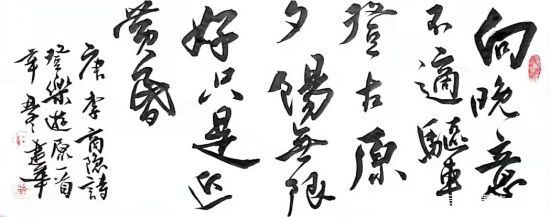 向晚意
不適驅車
登古原
夕陽無限
好只是近
黄昏
唐李商隐詩
登樂遊原一首